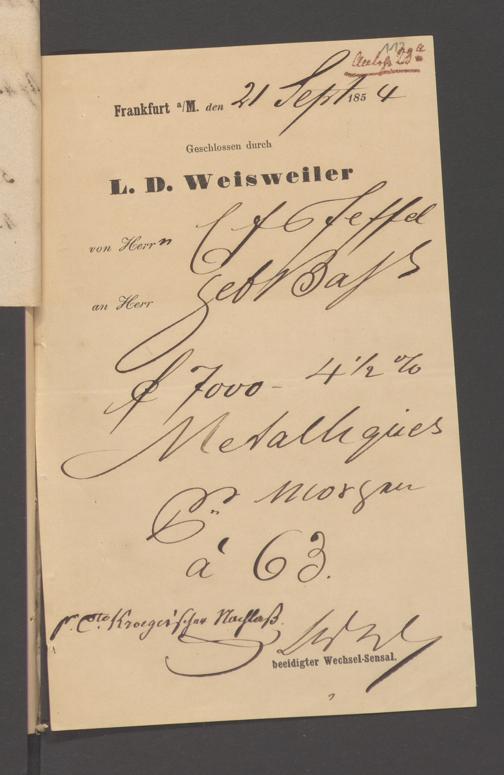 113
23a
Frankfurt a/M. den 21 Sept 1854
Geschlossen durch
L. D. Weisweiler
von Herrn C f
an Herr Gebr Baſs
f 7000 - 4 1/2 %
Metalliques
pr morgen
à 63.
pr. Cto Kroeger'scher Nachlaß.
beeidigter Wechsel-Sensal.